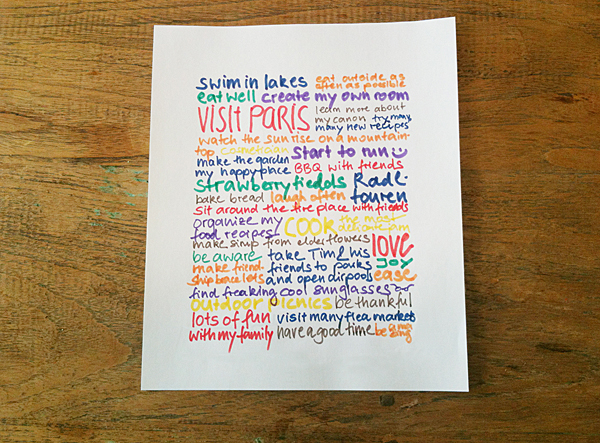 swim in lakes eat outside as
often as possible
eat well create my own room
VISIT PARIS learn more about
my canon try many
many new recipes
watch the sunrise on a mountain-
top cosmetician start to run
make the garden
my happy place BBQ with friends
strawberryfields Radl-
touren
bake bread laugh often
sit around the fireplace with friends
organize my
food recipes COOK the most
delicate jam
make sirup from elderflowers
LOVE
be aware take Tim & his
JOY
make friend- friends to parks
ship bracelets and open air pools ease
find freaking cool sunglasses
outdoor picnics be thankful
lots of fun visit many flea markets
with my family have a good time be